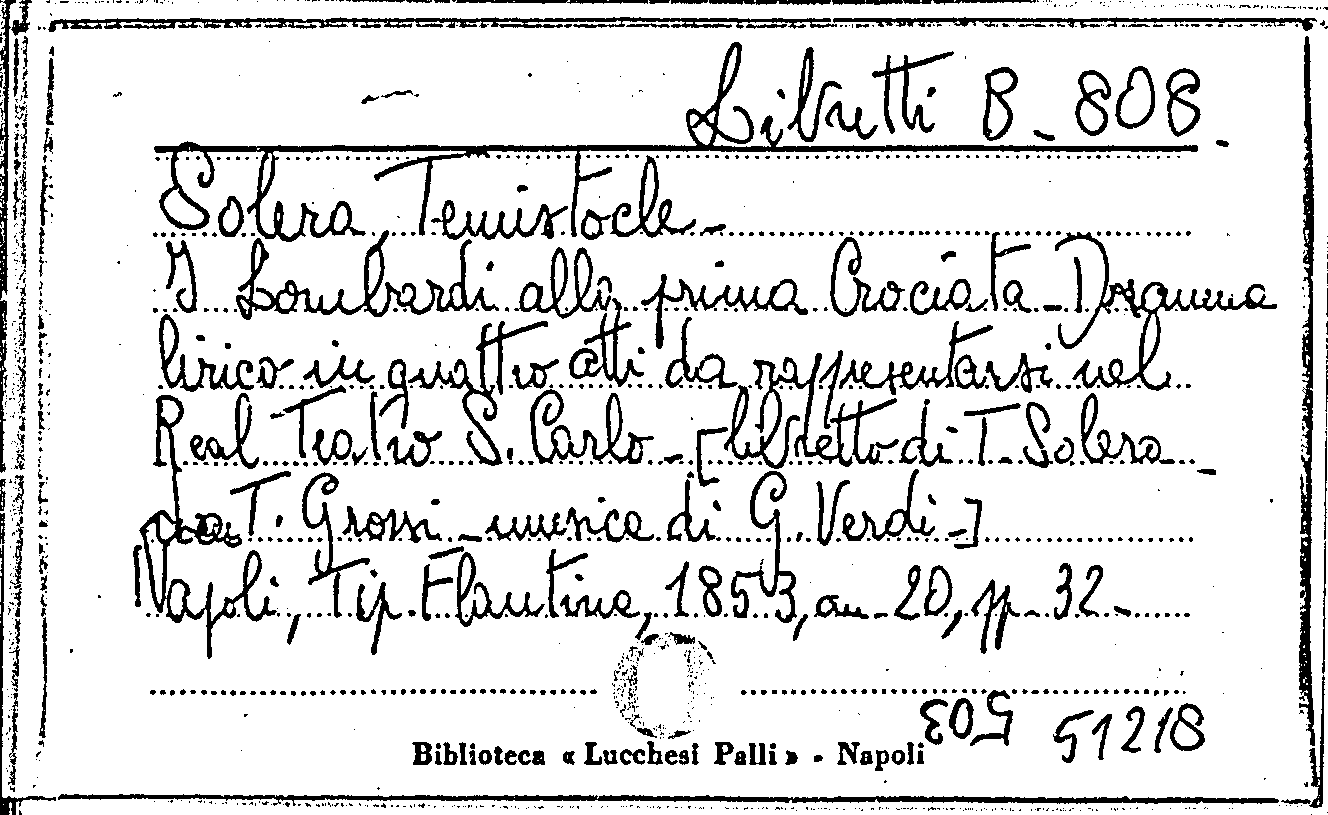 Libretti B - 808.
Solera, Temistocle -
I Lombardi alla prima Crociata - Dramma
lirico in quattro atti da rappresentarsi nel
Real Teatro S. Carlo - [libretto di T. Solera -
da T. Grossi - musica di G. Verdi -]
Napoli, Tip. Flautina, 1853, cm - 20, pp - 32 -
Biblioteca « Lucchesi Palli » - Napoli
503 51218